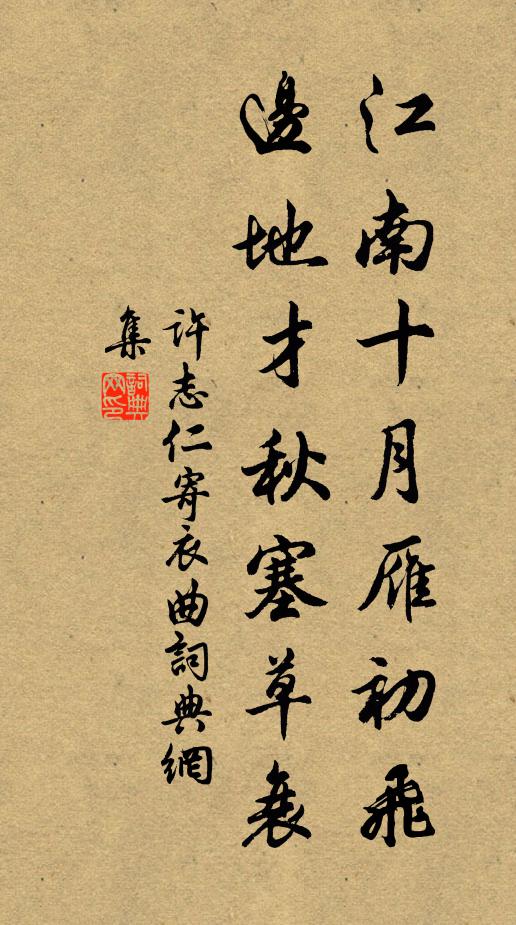 江南十月雁初飛
邊地才秋塞草衰
許志仁寄衣曲詞典網
集
詞典網印